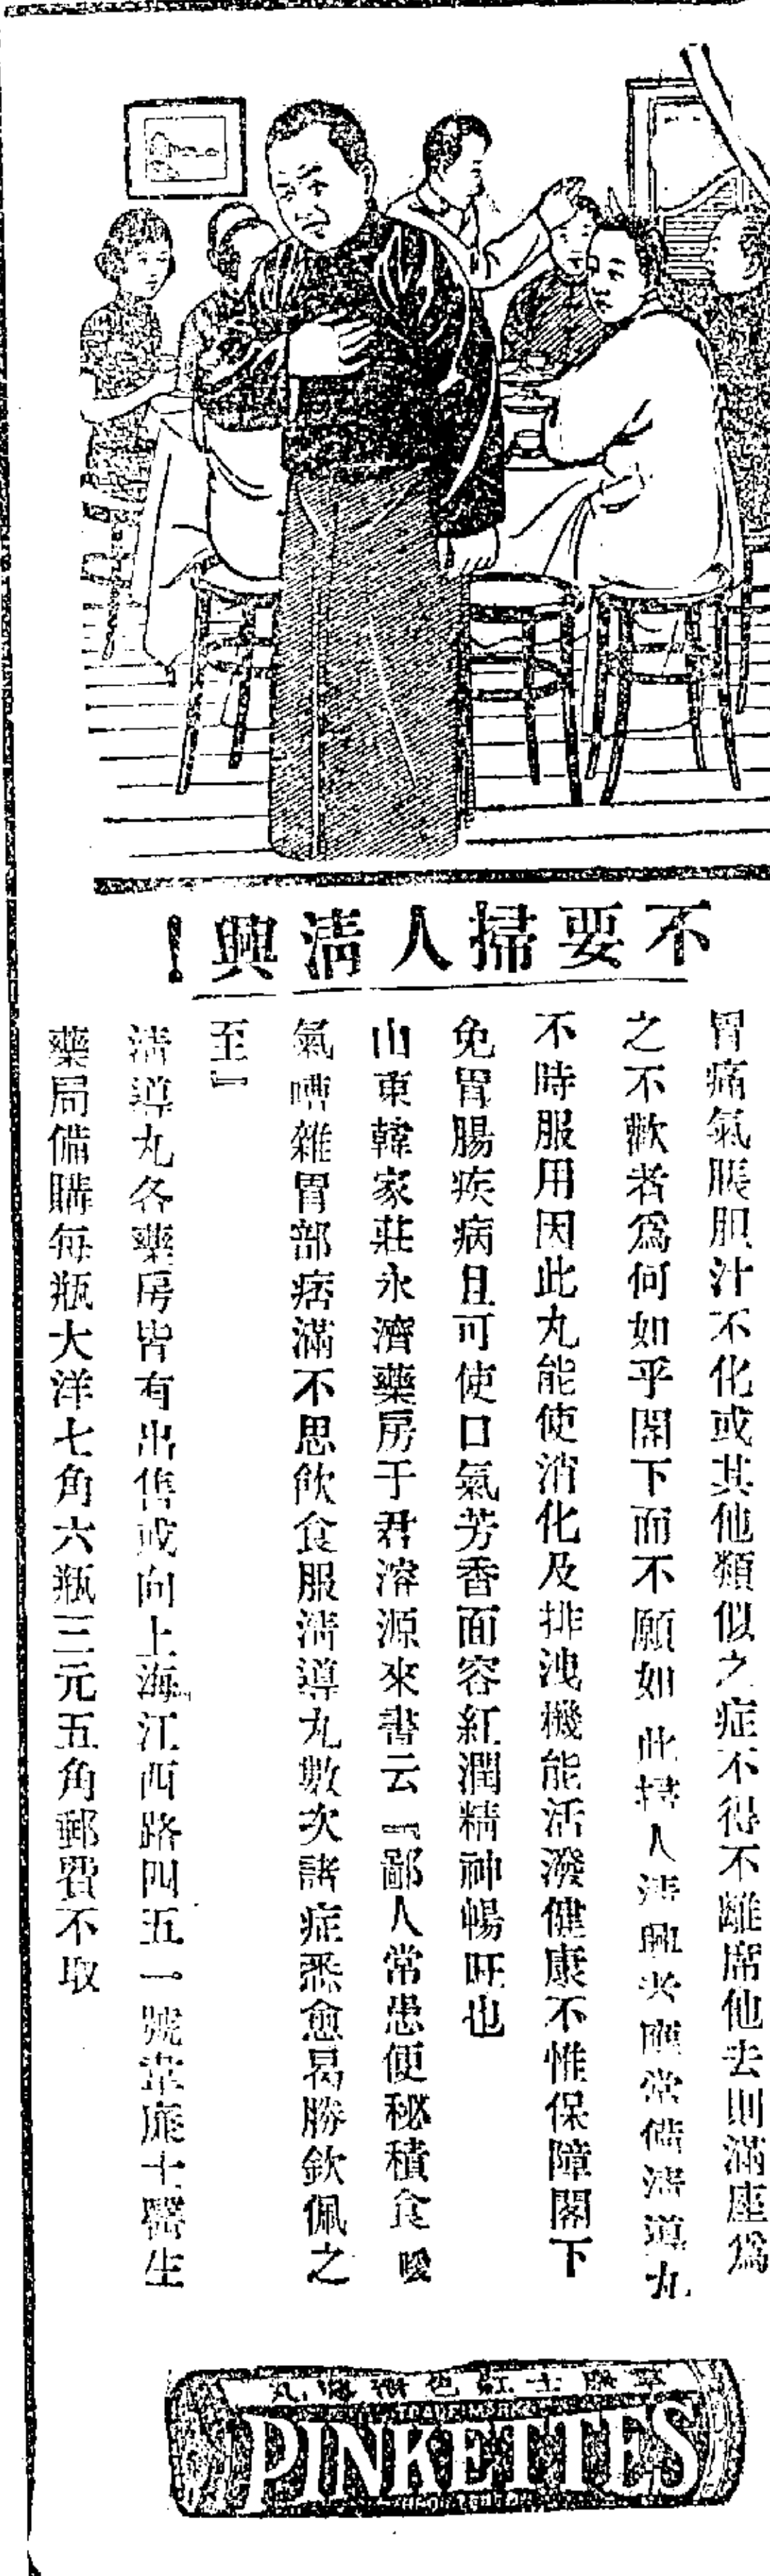 不要掃人清興!
胃痛氣脹胆汁不化或其他類似之症不得不離席他去則滿座爲
之不歡者爲何如乎閣下而不願如此掃人清興者應常備清導丸
不時服用因此丸能使消化及排洩機能活潑健康不惟保障閣下
免胃腸疾病且可使口氣芳香面容紅潤精神暢旺也
山東韓家莊永濟藥房于君溶源來書云『鄙人常患便秘積食噯
氣嘈雜胃部痞滿不思飲食服清導丸數次諸症悉愈曷勝欽佩之
至』
清導丸各藥房皆有出售或向上海江西路四五一號韋廉士醫生
藥局備購每瓶大洋七角六瓶三元五角郵費不取
丸導清色紅士廉韋
PINKETTES